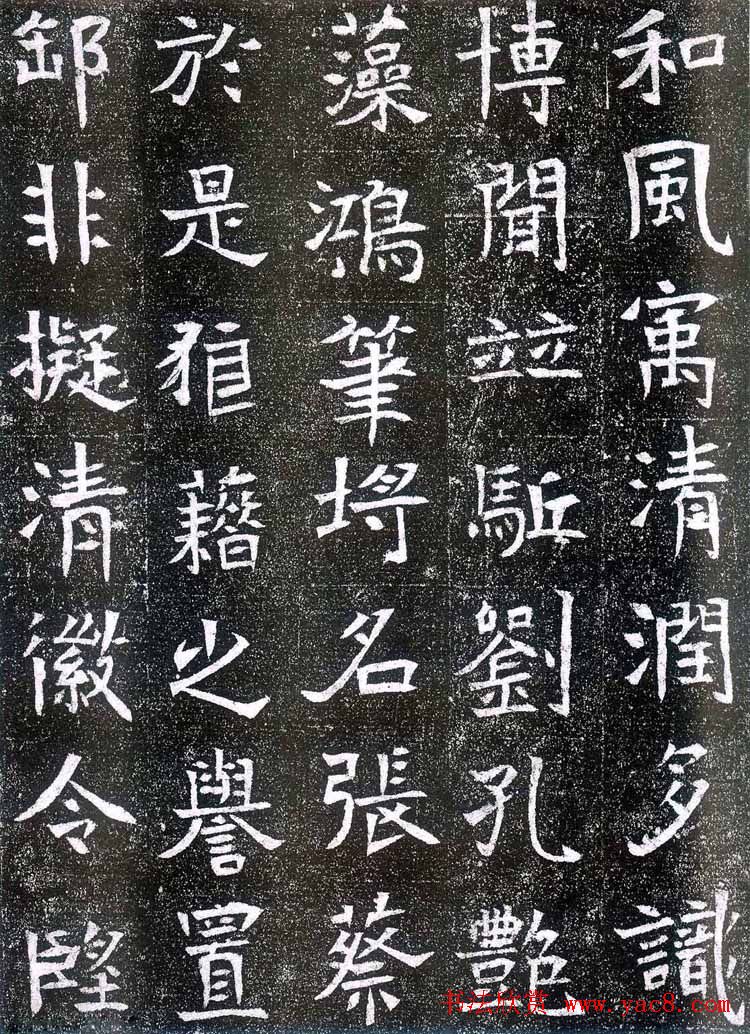 和風寓清潤多識
博聞竝駈劉孔艶
藻鴻筆埒名張蔡
於是藉之譽置
非擬清徽令
书法欣赏 www.yac8.com